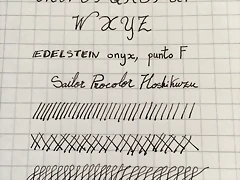 W X Y Z
EDELSTEIN onyx, punto F
Sailor Procolor Hoshikuzu